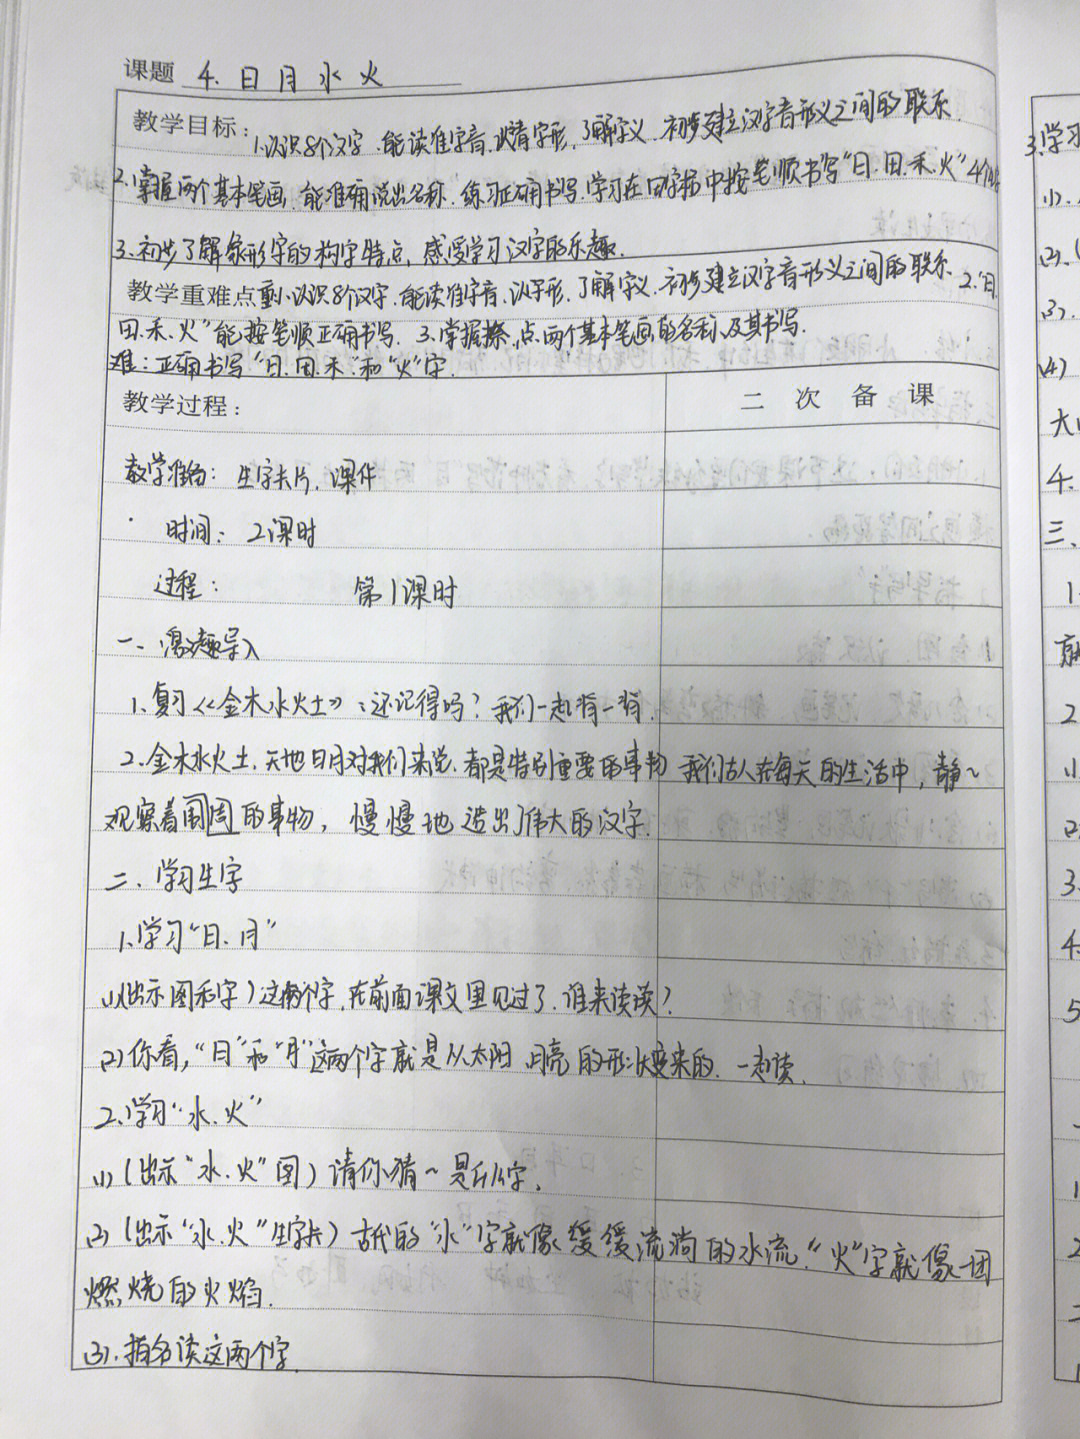 课题 4. 日月水火
教学目标: 1.认识8个汉字.能读准字音,认清字形,了解字义.初步建立汉字音形义之间的联系.
2.掌握两个基本笔画,能准确说出名称.练习正确书写.学习在田字格中按笔顺书写“日.田.禾.火”4个
3.初步了解象形字的构字特点,感受学习汉字的乐趣.
教学重难点 重:1.认识8个汉字.能读准字音.认字形.了解字义.初步建立汉字音形义之间的联系 2.“日
田.禾.火”能按笔顺正确书写. 3.掌握捺.点.两个基本笔画的名称及其书写.
难:正确书写“日.田.禾”和“火”字.
教学过程:
二次备课
教学准备:生字卡片.课件
时间: 2课时
过程: 第1课时
一、激趣导入
1.复习《金木水火土》:还记得吗?我们一起背一背.
2.金木水火土.天地日月对我们来说.都是特别重要的事物 我们古人在每天的生活中,静~
观察着周围的事物, 慢慢地造出了伟大的汉字.
二、学习生字
1.学习“日.月”
(1)(出示图和字)这两个字.在前面课文里见过了.谁来读读?
(2)你看,“日”和“月”这两个字就是从太阳 月亮的形状变来的.一起读.
2.学习“水.火”
(1)(出示“水.火”图)请你猜~是什么字.
(2)(出示“水.火”生字卡)古代的“水”字就像缓缓流淌的水流.“火”字就像一团
燃烧的火焰.
(3).指名读这两个字.
3.学习
(1).
(2).
(3).
(4)
大
4.
三、
1
2
3.
4.
5